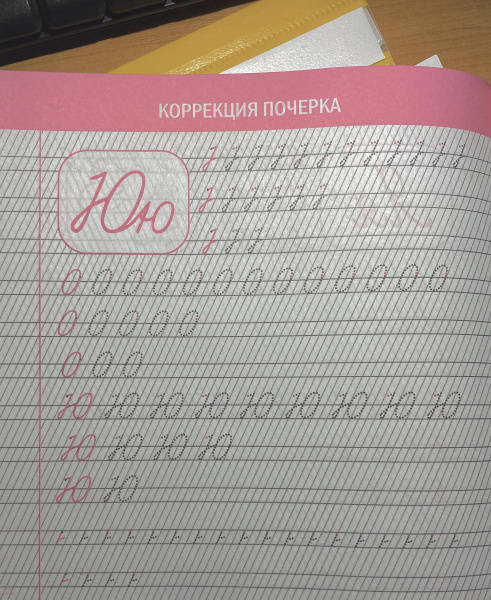 КОРРЕКЦИЯ ПОЧЕРКА
Юю
О О О О О О О О О О О О О
О О О О О
О О О
Ю Ю Ю Ю Ю Ю Ю Ю Ю
Ю Ю Ю Ю
Ю Ю